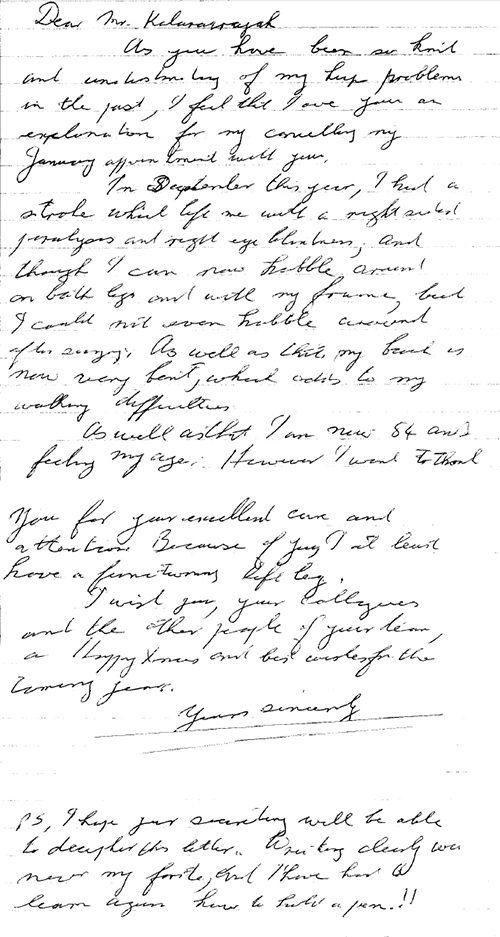 Dear Mr. Kalairajah
As you have been so kind
and understanding of my hip problems
in the past, I feel that I owe you an
explanation for my cancelling my
January appointment with you.
In September this year, I had a
stroke which left me with a right sided
paralysis and right eye blindness, and
though I can now hobble around
on both legs and with my frame, but
I could not even hobble around
after surgery. As well as that, my back is
now very bent, which adds to my
walking difficulties
As well as that I am now 84 and
feeling my age. However I want to thank
You for your excellent care and
attention. Because of you, I at least
have a functioning left leg.
I wish you, your colleagues
and the other people of your team,
a Happy Xmas and best wishes for the
coming year.
Yours sincerely
PS, I hope your secretary will be able
to decipher this letter. Writing clearly was
never my forte, but I have had to
learn again how to hold a pen.!!